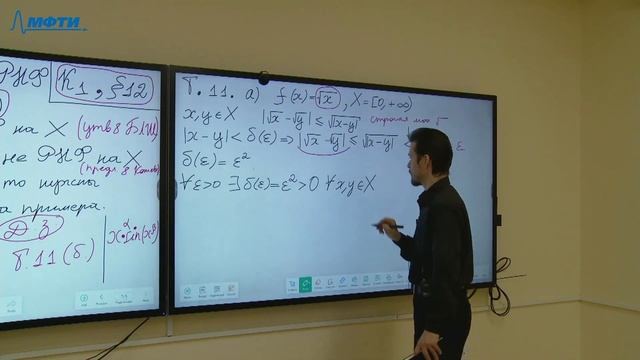 МФТИ
РНФ
К₁, §12
на X (утв 8 БЛИЦ)
не РНФ на X
(предл. 8 Конст)
то нужны
а примера.
ДЗ
Т.11(б)
x^α sin(x^β)
Т.11. а) f(x)=√x, X=[0,+∞)
x,y∈X |√x−√y| ≤ √|x−y|
|x−y| < δ(ε) ⇒ |√x−√y| ≤ √|x−y| < ε
δ(ε)=ε²
∀ε>0 ∃δ(ε)=ε²>0 ∀x,y∈X